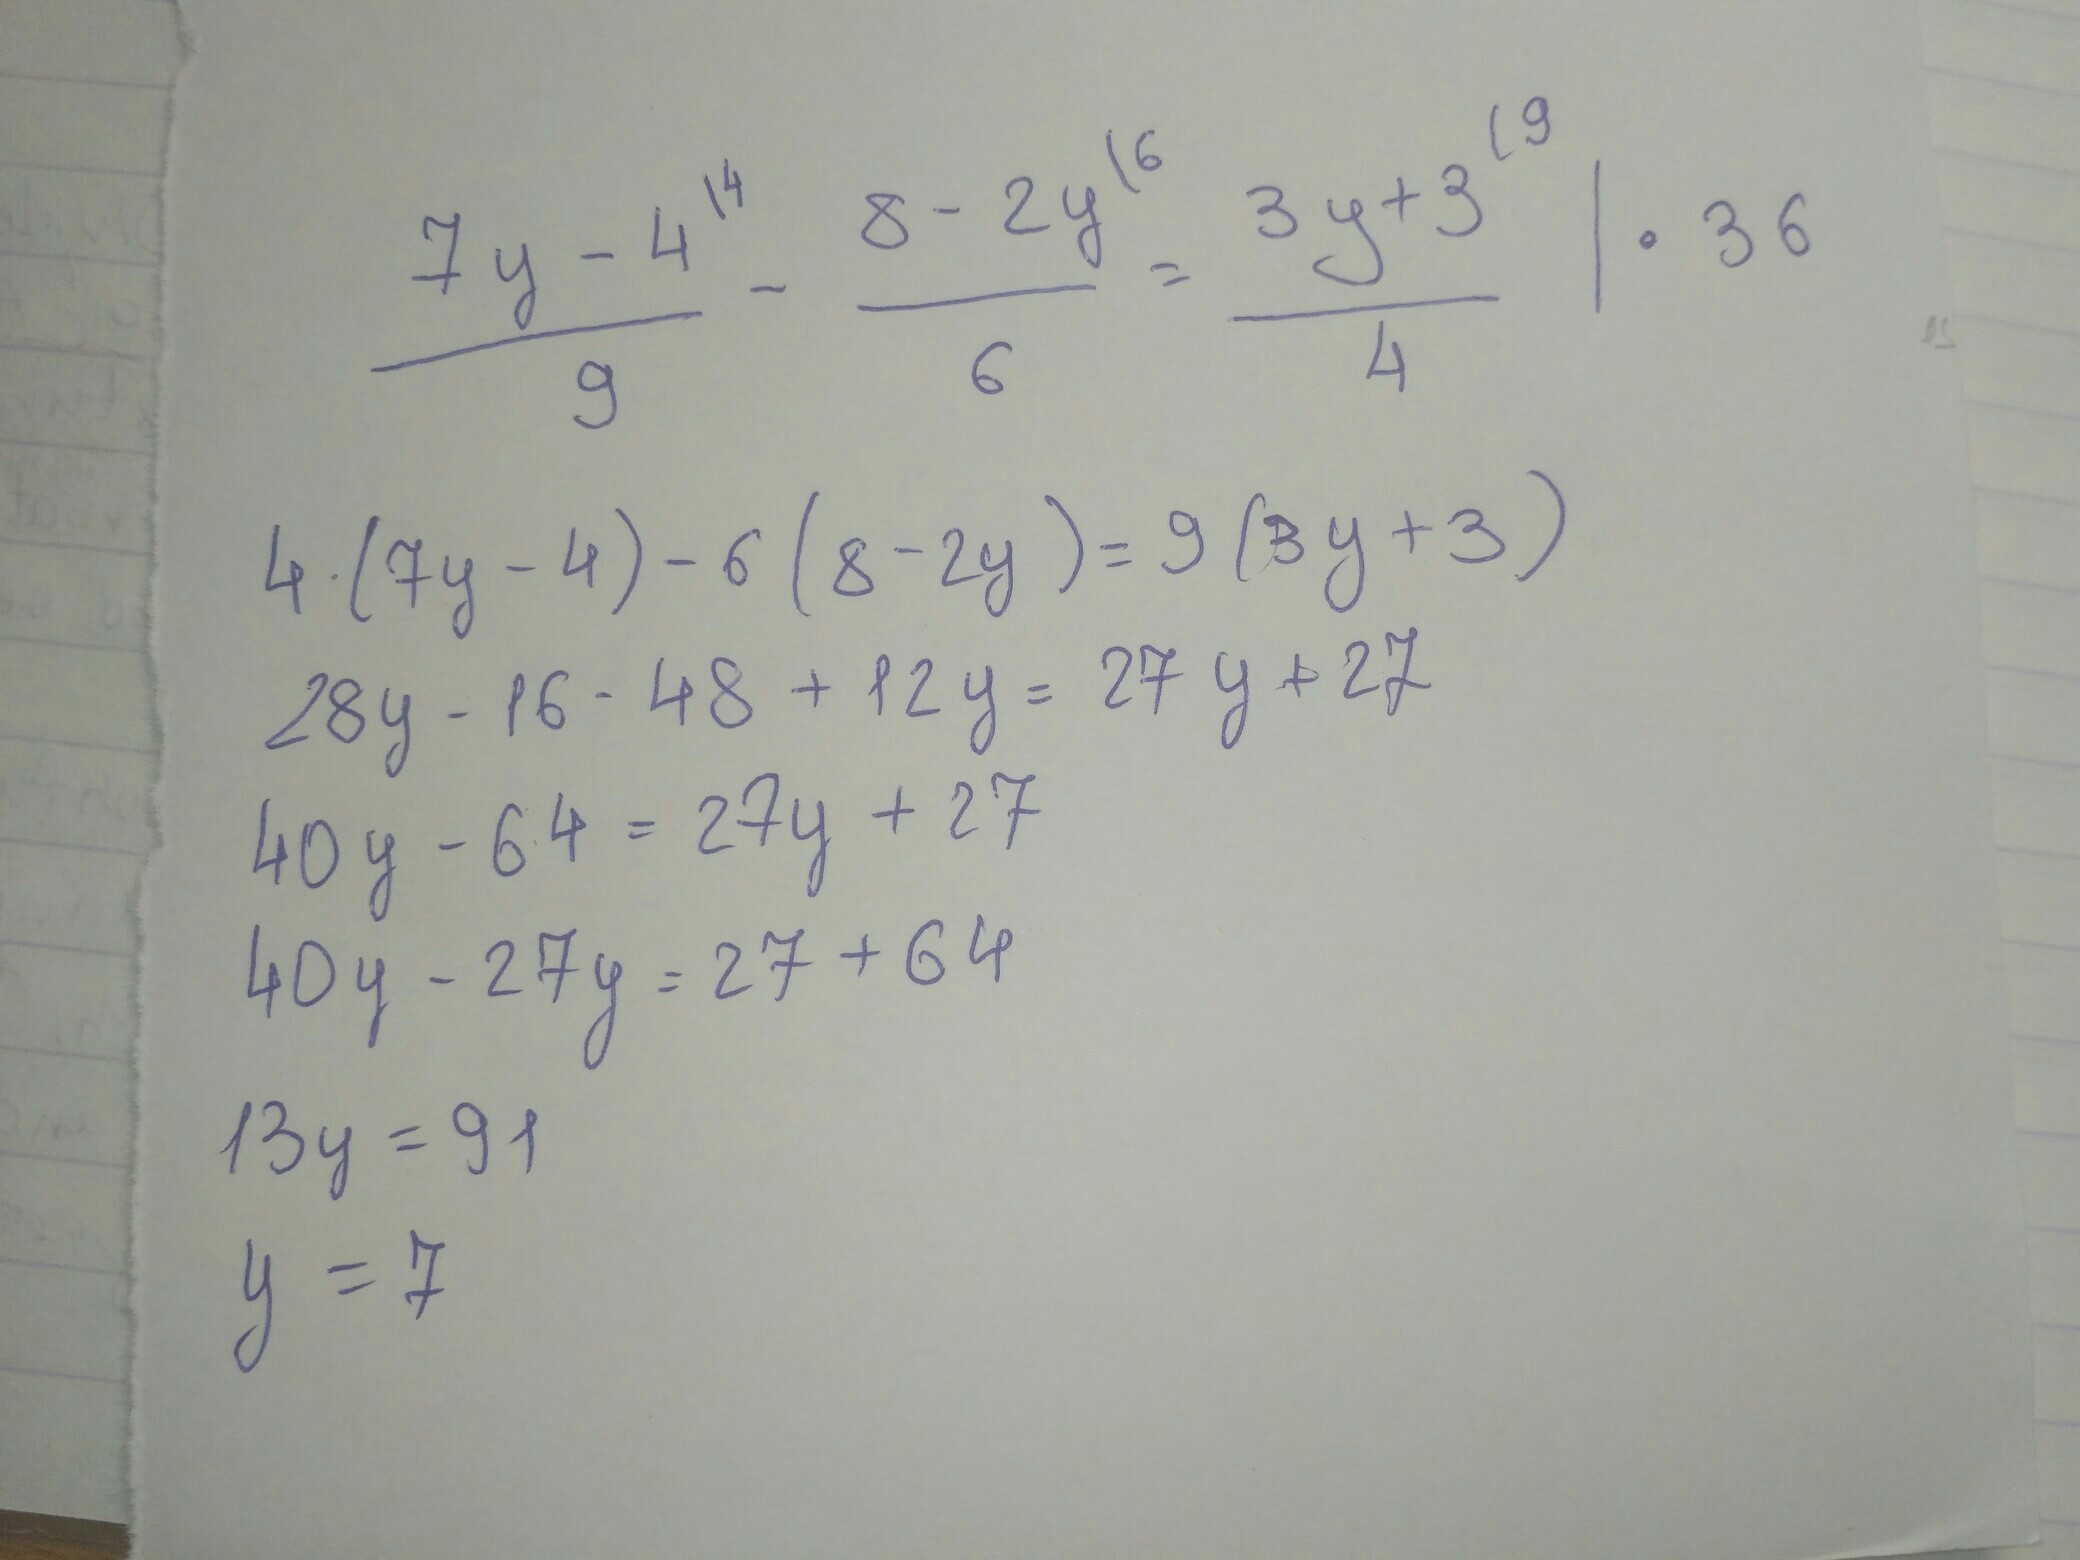 (7y - 4)/9 \4 - (8 - 2y)/6 \6 = (3y + 3)/4 (9 | · 36
4·(7y - 4) - 6(8 - 2y) = 9(3y + 3)
28y - 16 - 48 + 12y = 27y + 27
40y - 64 = 27y + 27
40y - 27y = 27 + 64
13y = 91
y = 7